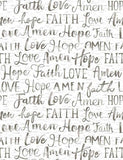 Faith Love Amen Hope
FAITH Love Amen FAITH
Love Hope AMEN HOPE
Hope Faith LOVE AMEN
Amen HOPE Faith Love
HOPE Faith Love Amen Hope
FAITH Love Amen FAITH
Love Hope AMEN HOPE
Hope Faith LOVE AMEN
Amen HOPE Faith Love
HOPE Faith Love Amen Hope